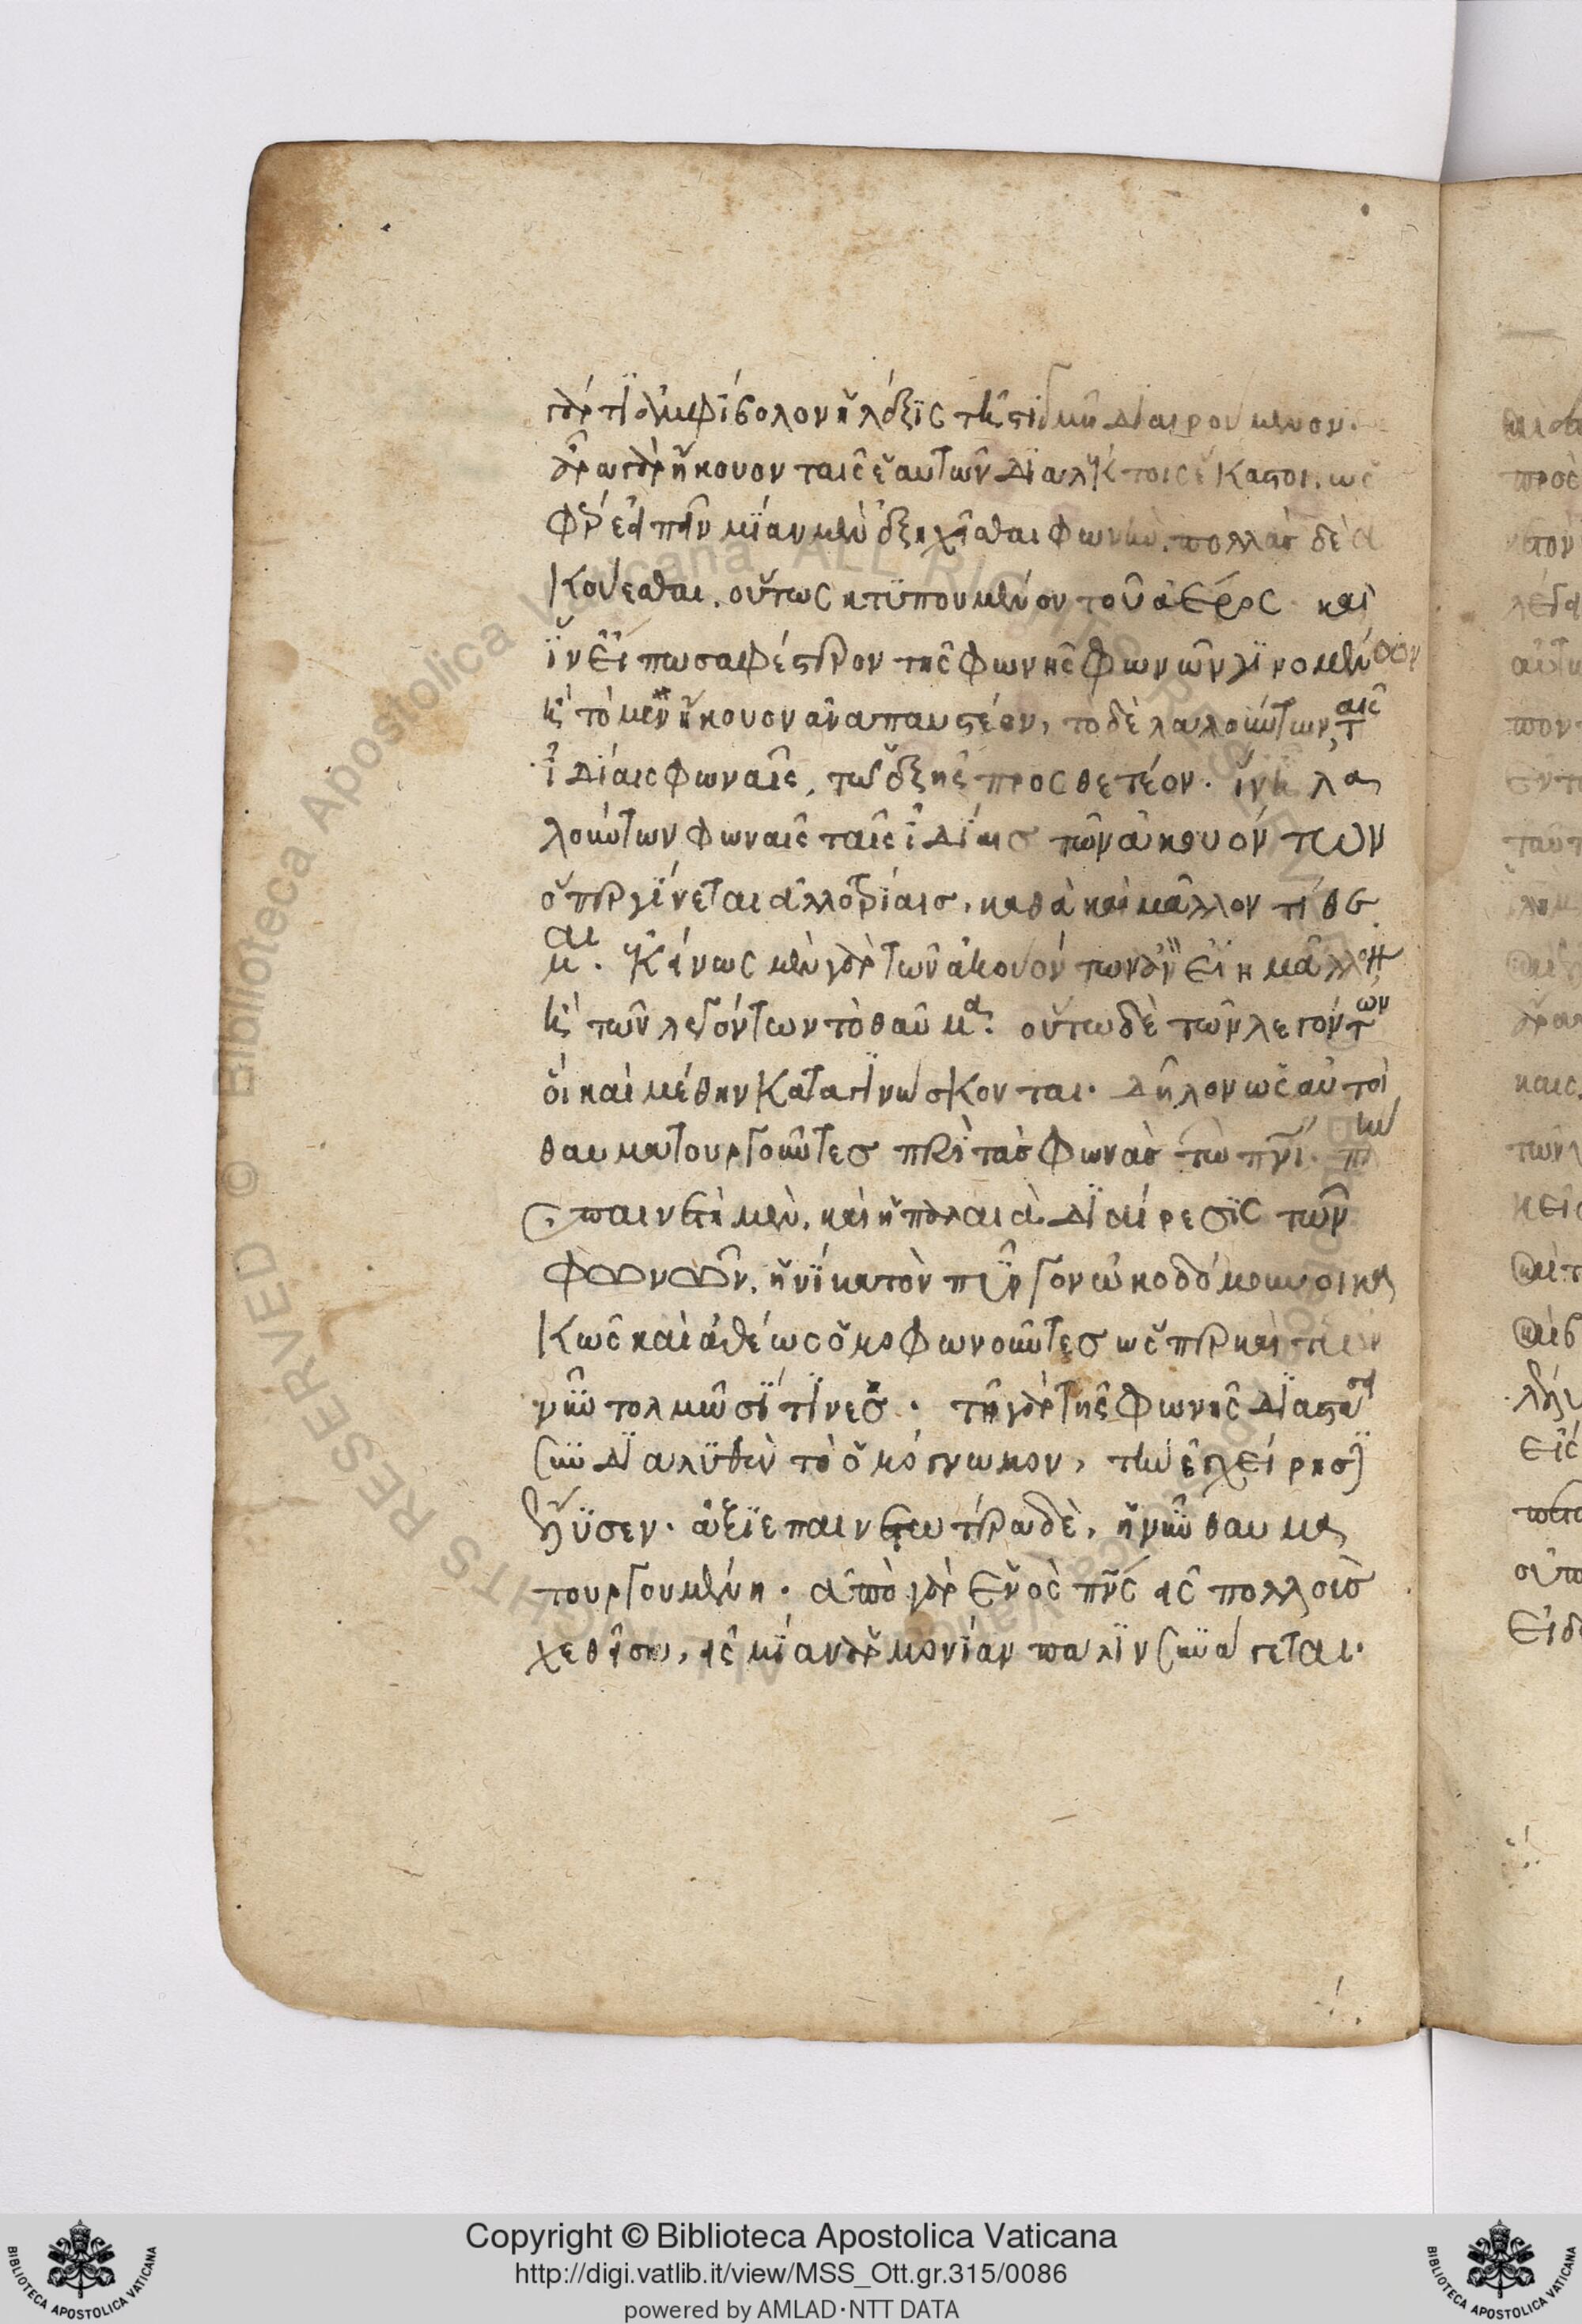 γάρ τι ἀμφίβολον ἡ λέξις τῇ στιγμῇ διαιρούμενον.
ἆρα γὰρ ἤκουον ταῖς ἑαυτῶν διαλέκτοις ἕκαστοι, ὡς
φέρε εἰπεῖν μίαν μὲν ἐξηχεῖσθαι φωνὴν, πολλὰς δὲ ἀ
κούεσθαι. οὕτως κτυπουμένου τοῦ ἀέρος καὶ
ἵν εἴπω σαφέστερον τῆς φωνῆς φωνῶν γινομένων
ἢ τὸ μὲν ἤκουον ἀναπαυστέον, τὸ δὲ λαλούντων, ταῖς
ἰδίαις φωναῖς, τῶ ἑξῆς προσθετέον. ἵν ᾖ λα
λούντων φωναῖς ταῖς ἰδίαις τῶν ἀκουόντων
ὅπερ γίνεται ἀλλοτρίαις, καθὰ καὶ μᾶλλον τίθε
μαι. ἐκείνως μὲν γὰρ τῶν ἀκουόντων ἂν εἴη μᾶλλον
ἢ τῶν λεγόντων τὸ θαῦμα. οὕτω δὲ τῶν λεγόντων
οἳ καὶ μέθην καταγινώσκονται. δῆλον ὡς αὐτοὶ
θαυματουργοῦντες περὶ τὰς φωνὰς τῶ πνι. πλὴν
ἐπαινετὴ μὲν, καὶ ἡ παλαιὰ διαίρεσις τῶν
φωνῶν, ἡνίκα τὸν πύργον ὠκοδόμουν οἱ κα
κῶς καὶ ἀθέως ὁμοφωνοῦντες ὥσπερ καὶ τῶν
νῦν τολμῶσί τινες. τῇ γὰρ τῆς φωνῆς διαστάσει
συνδιαλυθὲν τὸ ὁμόγνωμον, τὴν ἐγχείρησιν
ἔλυσεν. ἀξιεπαινετωτέρα δὲ, ἡ νῦν θαυμα
τουργουμένη. ἀπὸ γὰρ ἑνὸς πνς εἰς πολλοὺς
χεθεῖσα, εἰς μίαν ἁρμονίαν πάλιν συνάγεται.
Copyright © Biblioteca Apostolica Vaticana
http://digi.vatlib.it/view/MSS_Ott.gr.315/0086
powered by AMLAD·NTT DATA